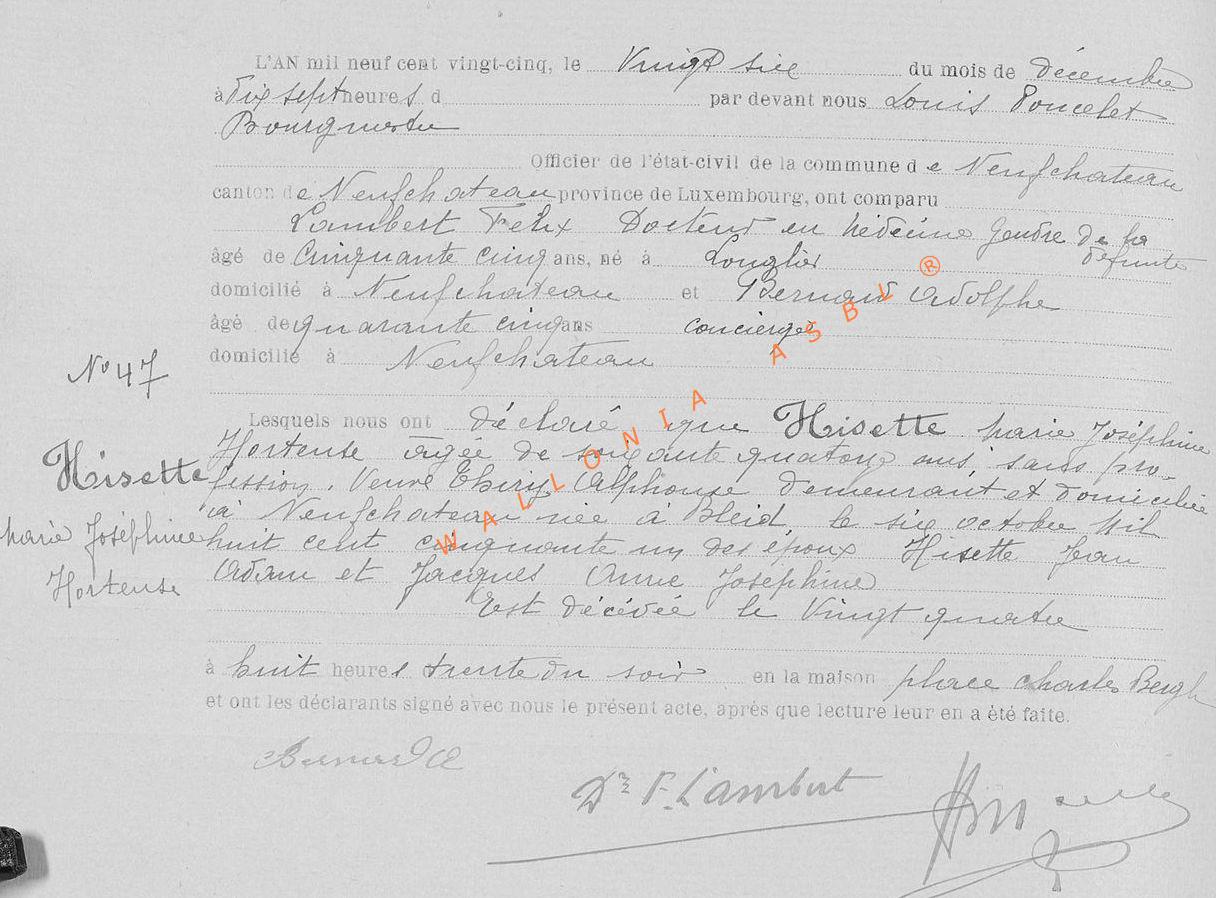 L'AN mil neuf cent vingt-cinq, le Vingt six du mois de décembre
à Dix sept heures d par devant nous Louis Poncelet
Bourgmestre
Officier de l'état-civil de la commune de Neufchateau
canton de Neufchateau province de Luxembourg, ont comparu
Lambert Felix Docteur en Médecine Gendre de la
défunte
âgé de Cinquante cinq ans, né à Longlier
domicilié à Neufchateau et Bernard Adolphe
âgé de quarante cinq ans concierge
domicilié à Neufchateau
No 47
Lesquels nous ont déclaré que Hisette Marie Joséphine
Hortense âgée de soixante quatorze ans, sans pro-
fession, Veuve Thiry Alphonse demeurant et domiciliée
à Neufchateau née à Bleid, le six octobre Mil
huit cent cinquante un des époux Hisette Jean
Adam et Jacques Anne Joséphine
Est décédée le Vingt quatre
Hisette
Marie Joséphine
Hortense
à huit heures trente du soir en la maison place Charles Bergh
et ont les déclarants signé avec nous le présent acte, après que lecture leur en a été faite.
Bernard A
Dr F. Lambert
WALLONIA ASBL ®